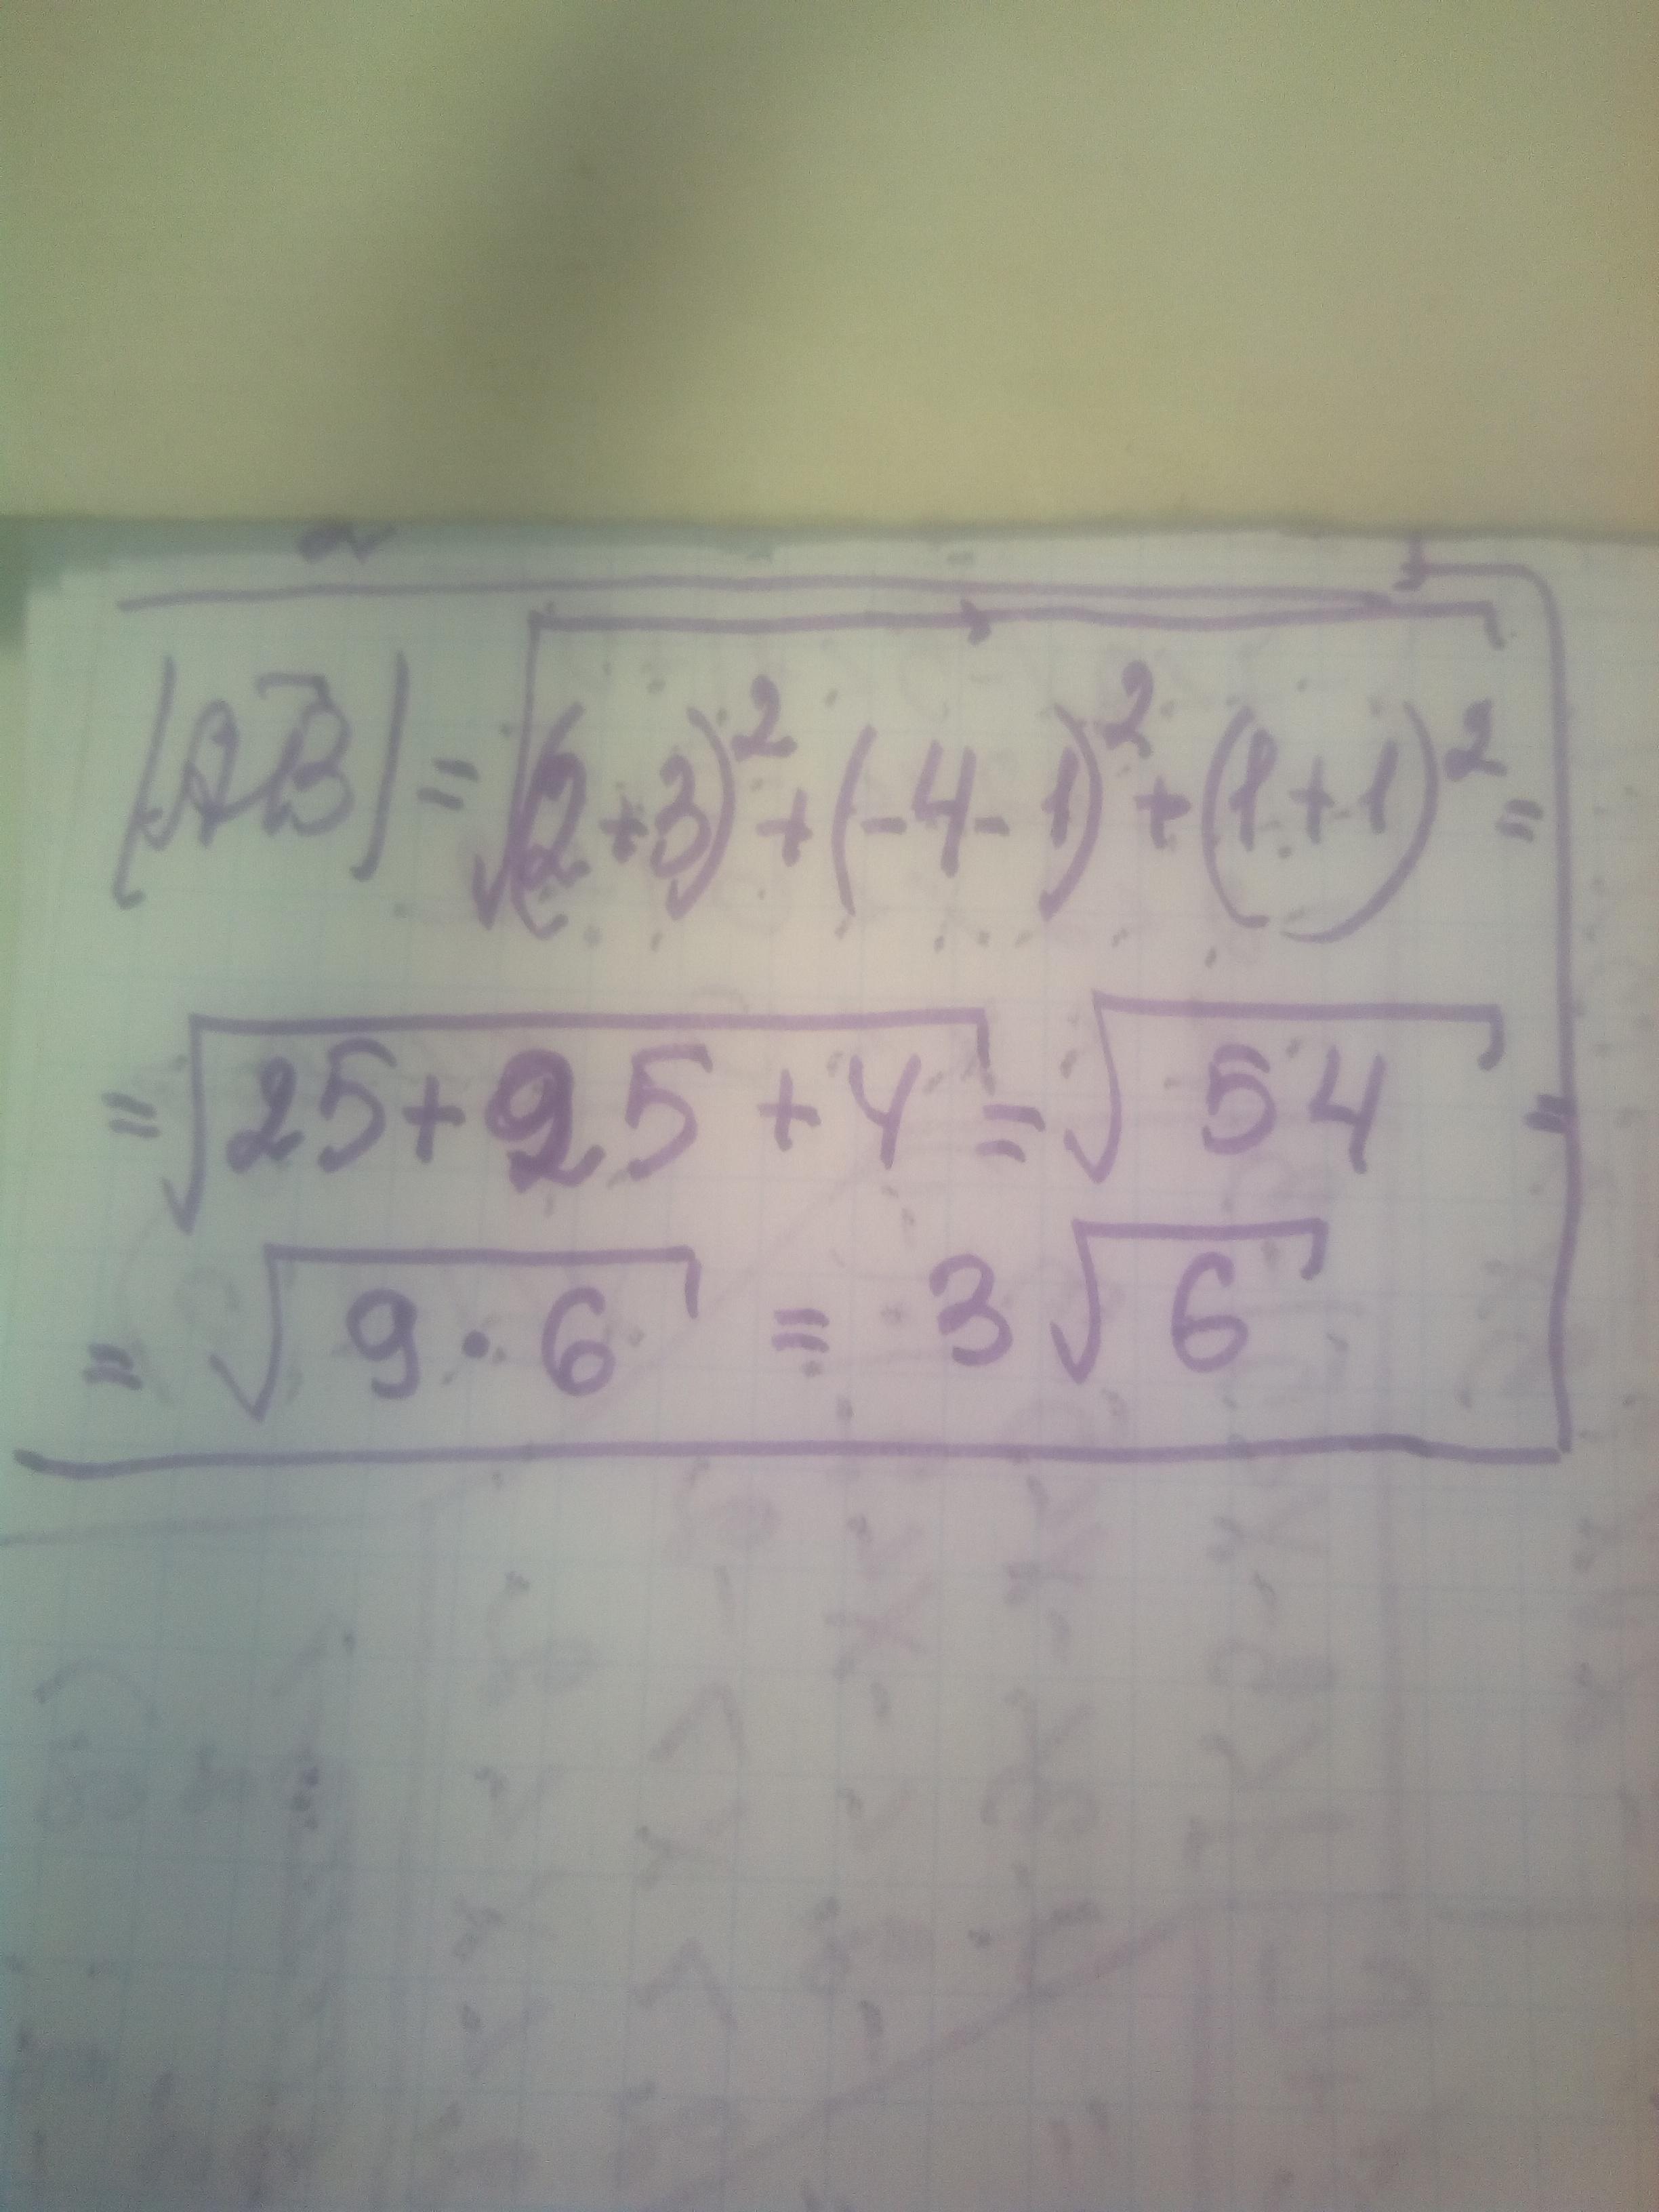 |AB| = √(2+3)² + (-4-1)² + (1+1)² =
= √25+25+4 = √54 =
= √9·6 = 3√6